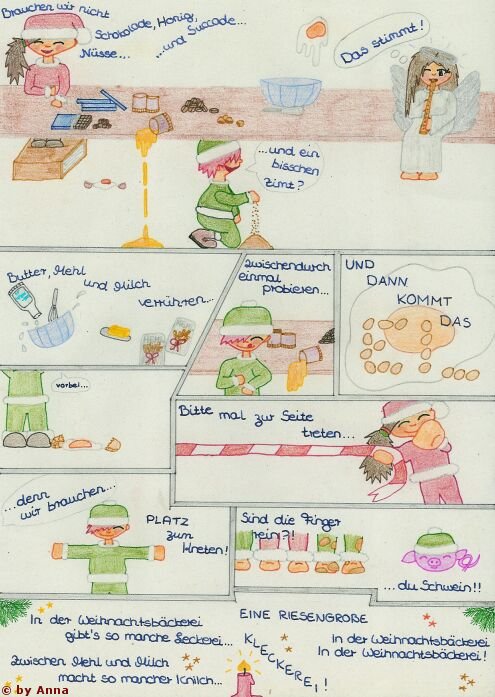 Brauchen wir nicht
Schokolade, Honig,
Nüsse... ...und Succade...
Das stimmt!
...und ein
bisschen
Zimt?
Butter, Mehl
und Milch
verrühren...
zwischendurch
einmal
probieren...
UND
DANN
KOMMT
DAS
vorbei...
Bitte mal zur Seite
treten...
...denn
wir brauchen...
PLATZ
zum
kneten!
Sind die Finger
rein?!
...du Schwein!!
In der Weihnachtsbäckerei
gibt's so manche Leckerei...
Zwischen Mehl und Milch
macht so mancher Knilch...
EINE RIESENGROßE
KLECKEREI!
In der Weihnachtsbäckerei
In der Weihnachtsbäckerei!
© by Anna